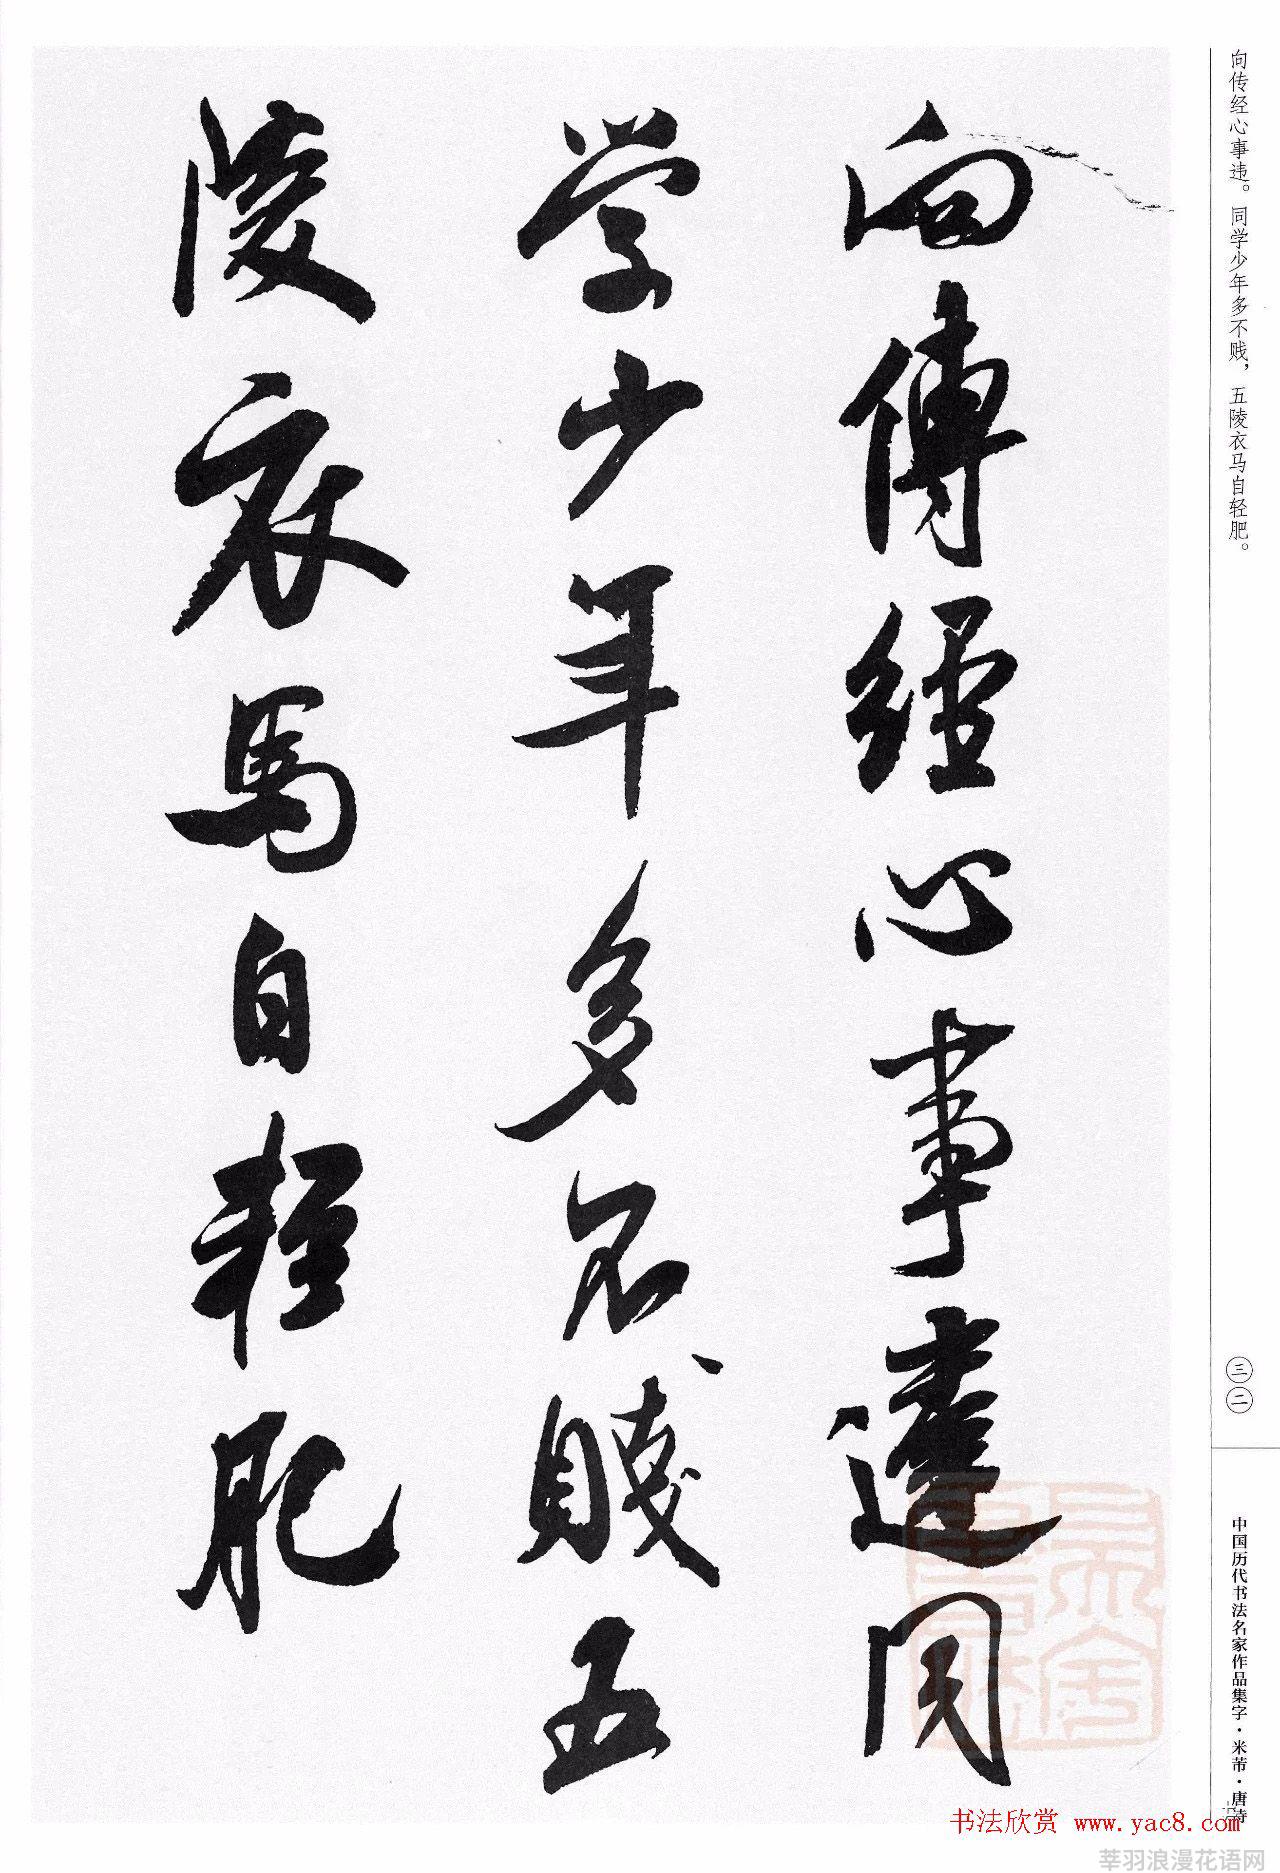 向傳經心事違同
学少年多不賤五
陵衣馬自輕肥
向传经心事违。同学少年多不贱，五陵衣马自轻肥。
三二
中国历代书法名家作品集字·米芾·唐诗
书法欣赏 www.yac8.com
莘羽浪漫花语网